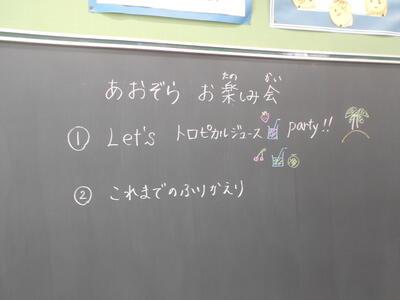 あおぞら お楽しみ会
① Let's トロピカルジュース party!!
② これまでのふりかえり